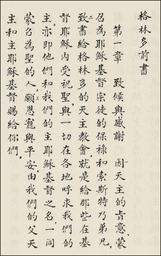 格林多前書
第一章　致候與感謝　因天主的旨意,蒙
召為耶穌基督宗徒的保祿和索斯特乃弟兄,
致書給格林多的天主教會,就是給那些在基
督耶穌內受祝聖,與一切在各地呼求我們的
主,亦即他們和我們的主耶穌基督之名,一同
蒙召為聖的人。願恩寵與平安,由我們的父天
主和主耶穌基督賜給你們。